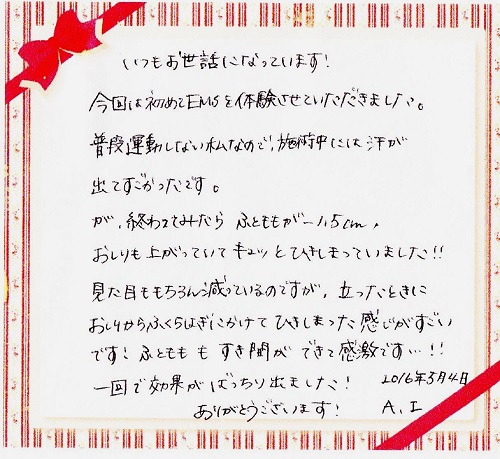 いつもお世話になっています!
今回は初めてEMSを体験させていただきました。
普段運動しない私なので、施術中には汗が
出てすごかったです。
が、終わってみたら ふとももが−1.5cm、
おしりも上がっていて キュッと ひきしまっていました!!
見た目ももちろん減っているのですが、立ったときに
おしりからふくらはぎにかけて ひきしまった感じがすごい
です! ふともも も すき間が できて感激です…!!
一回で効果がばっちり出ました!
2016年3月4日
ありがとうございます!
A.I